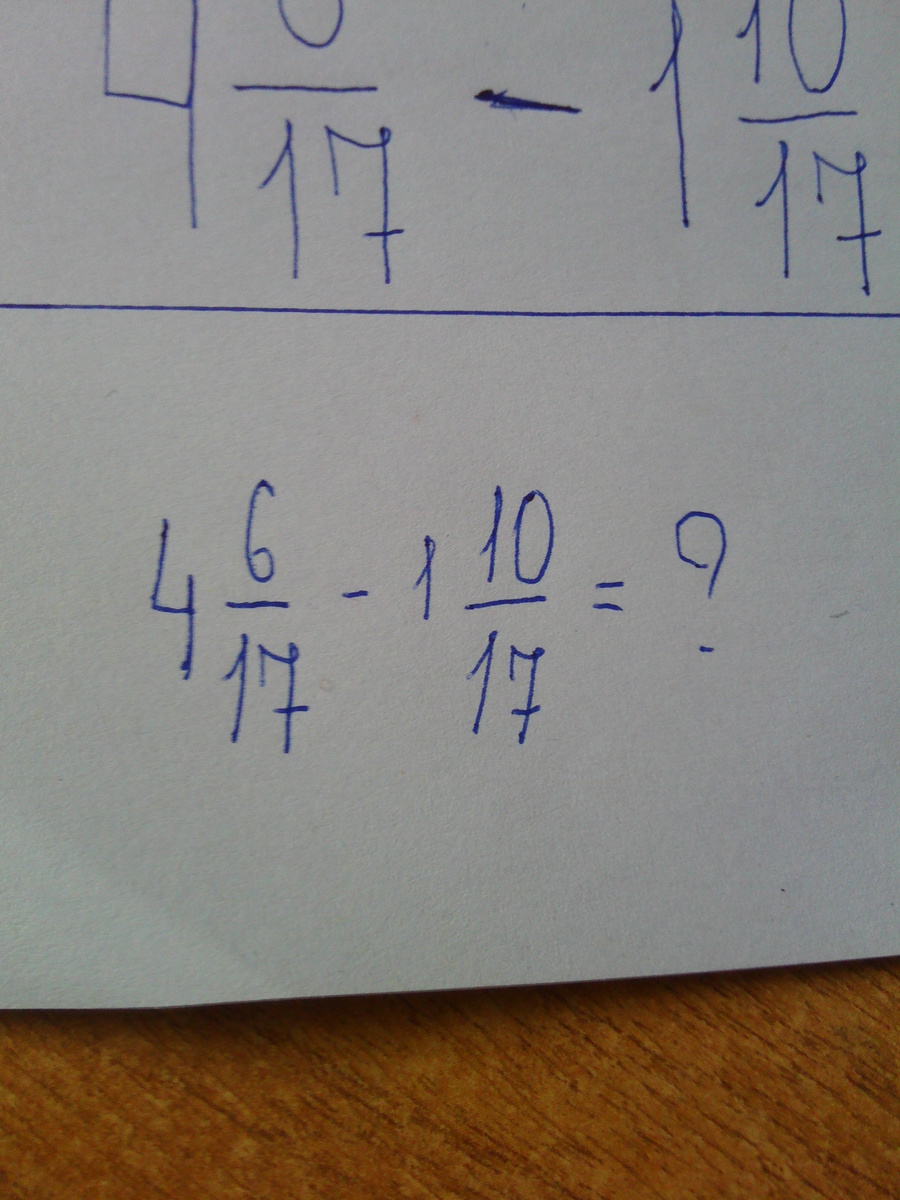 4 6/17 - 1 10/17
4 6/17 - 1 10/17 = ?